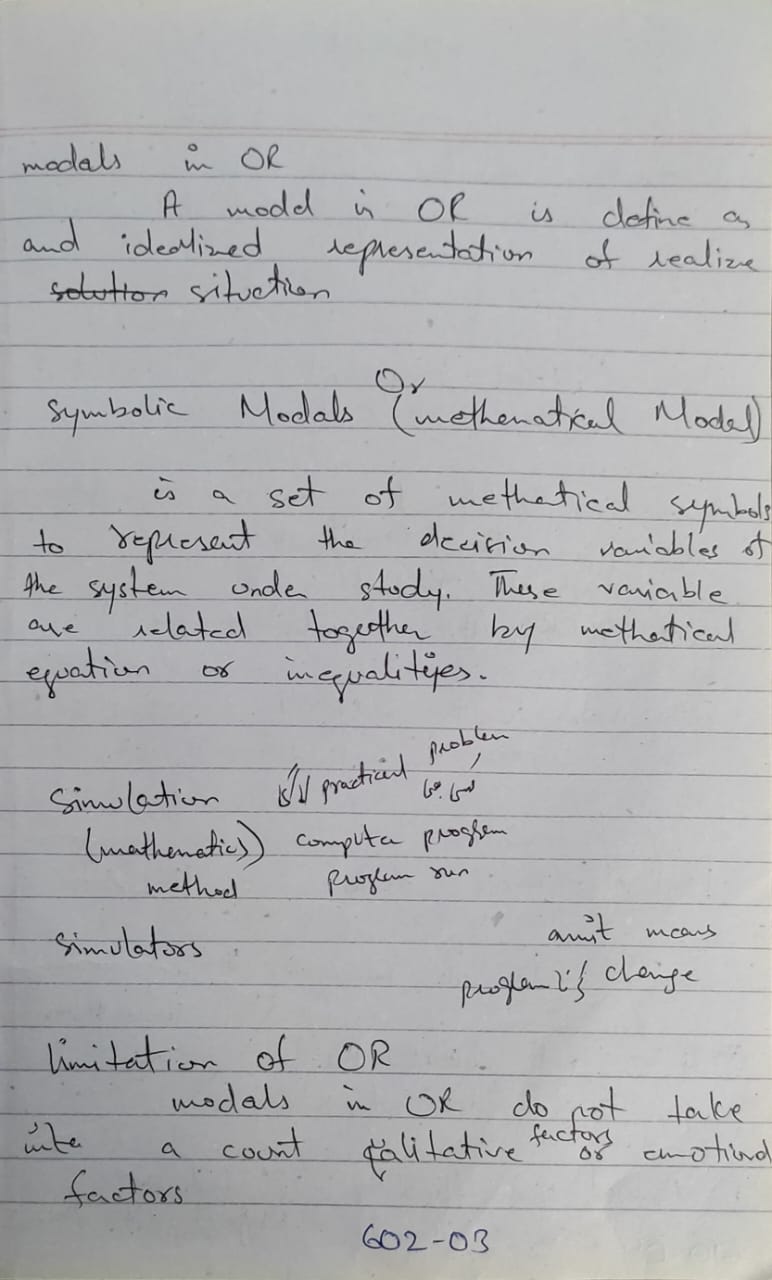 modals in OR
A model in OR is define as
and idealized representation of realize
solution situation
Or
Symbolic Modals (mathematical Model)
is a set of methatical symbols
to represent the decision variables of
the system under study. These variable
are related together by methatical
equation or inequalityes.
Simulation practical problem
(mathematics) computer program
method program run
Simulators
means
problem change
limitation of OR
modals in OR do not take
into a count qalitative factors or emotional
factors
602-03